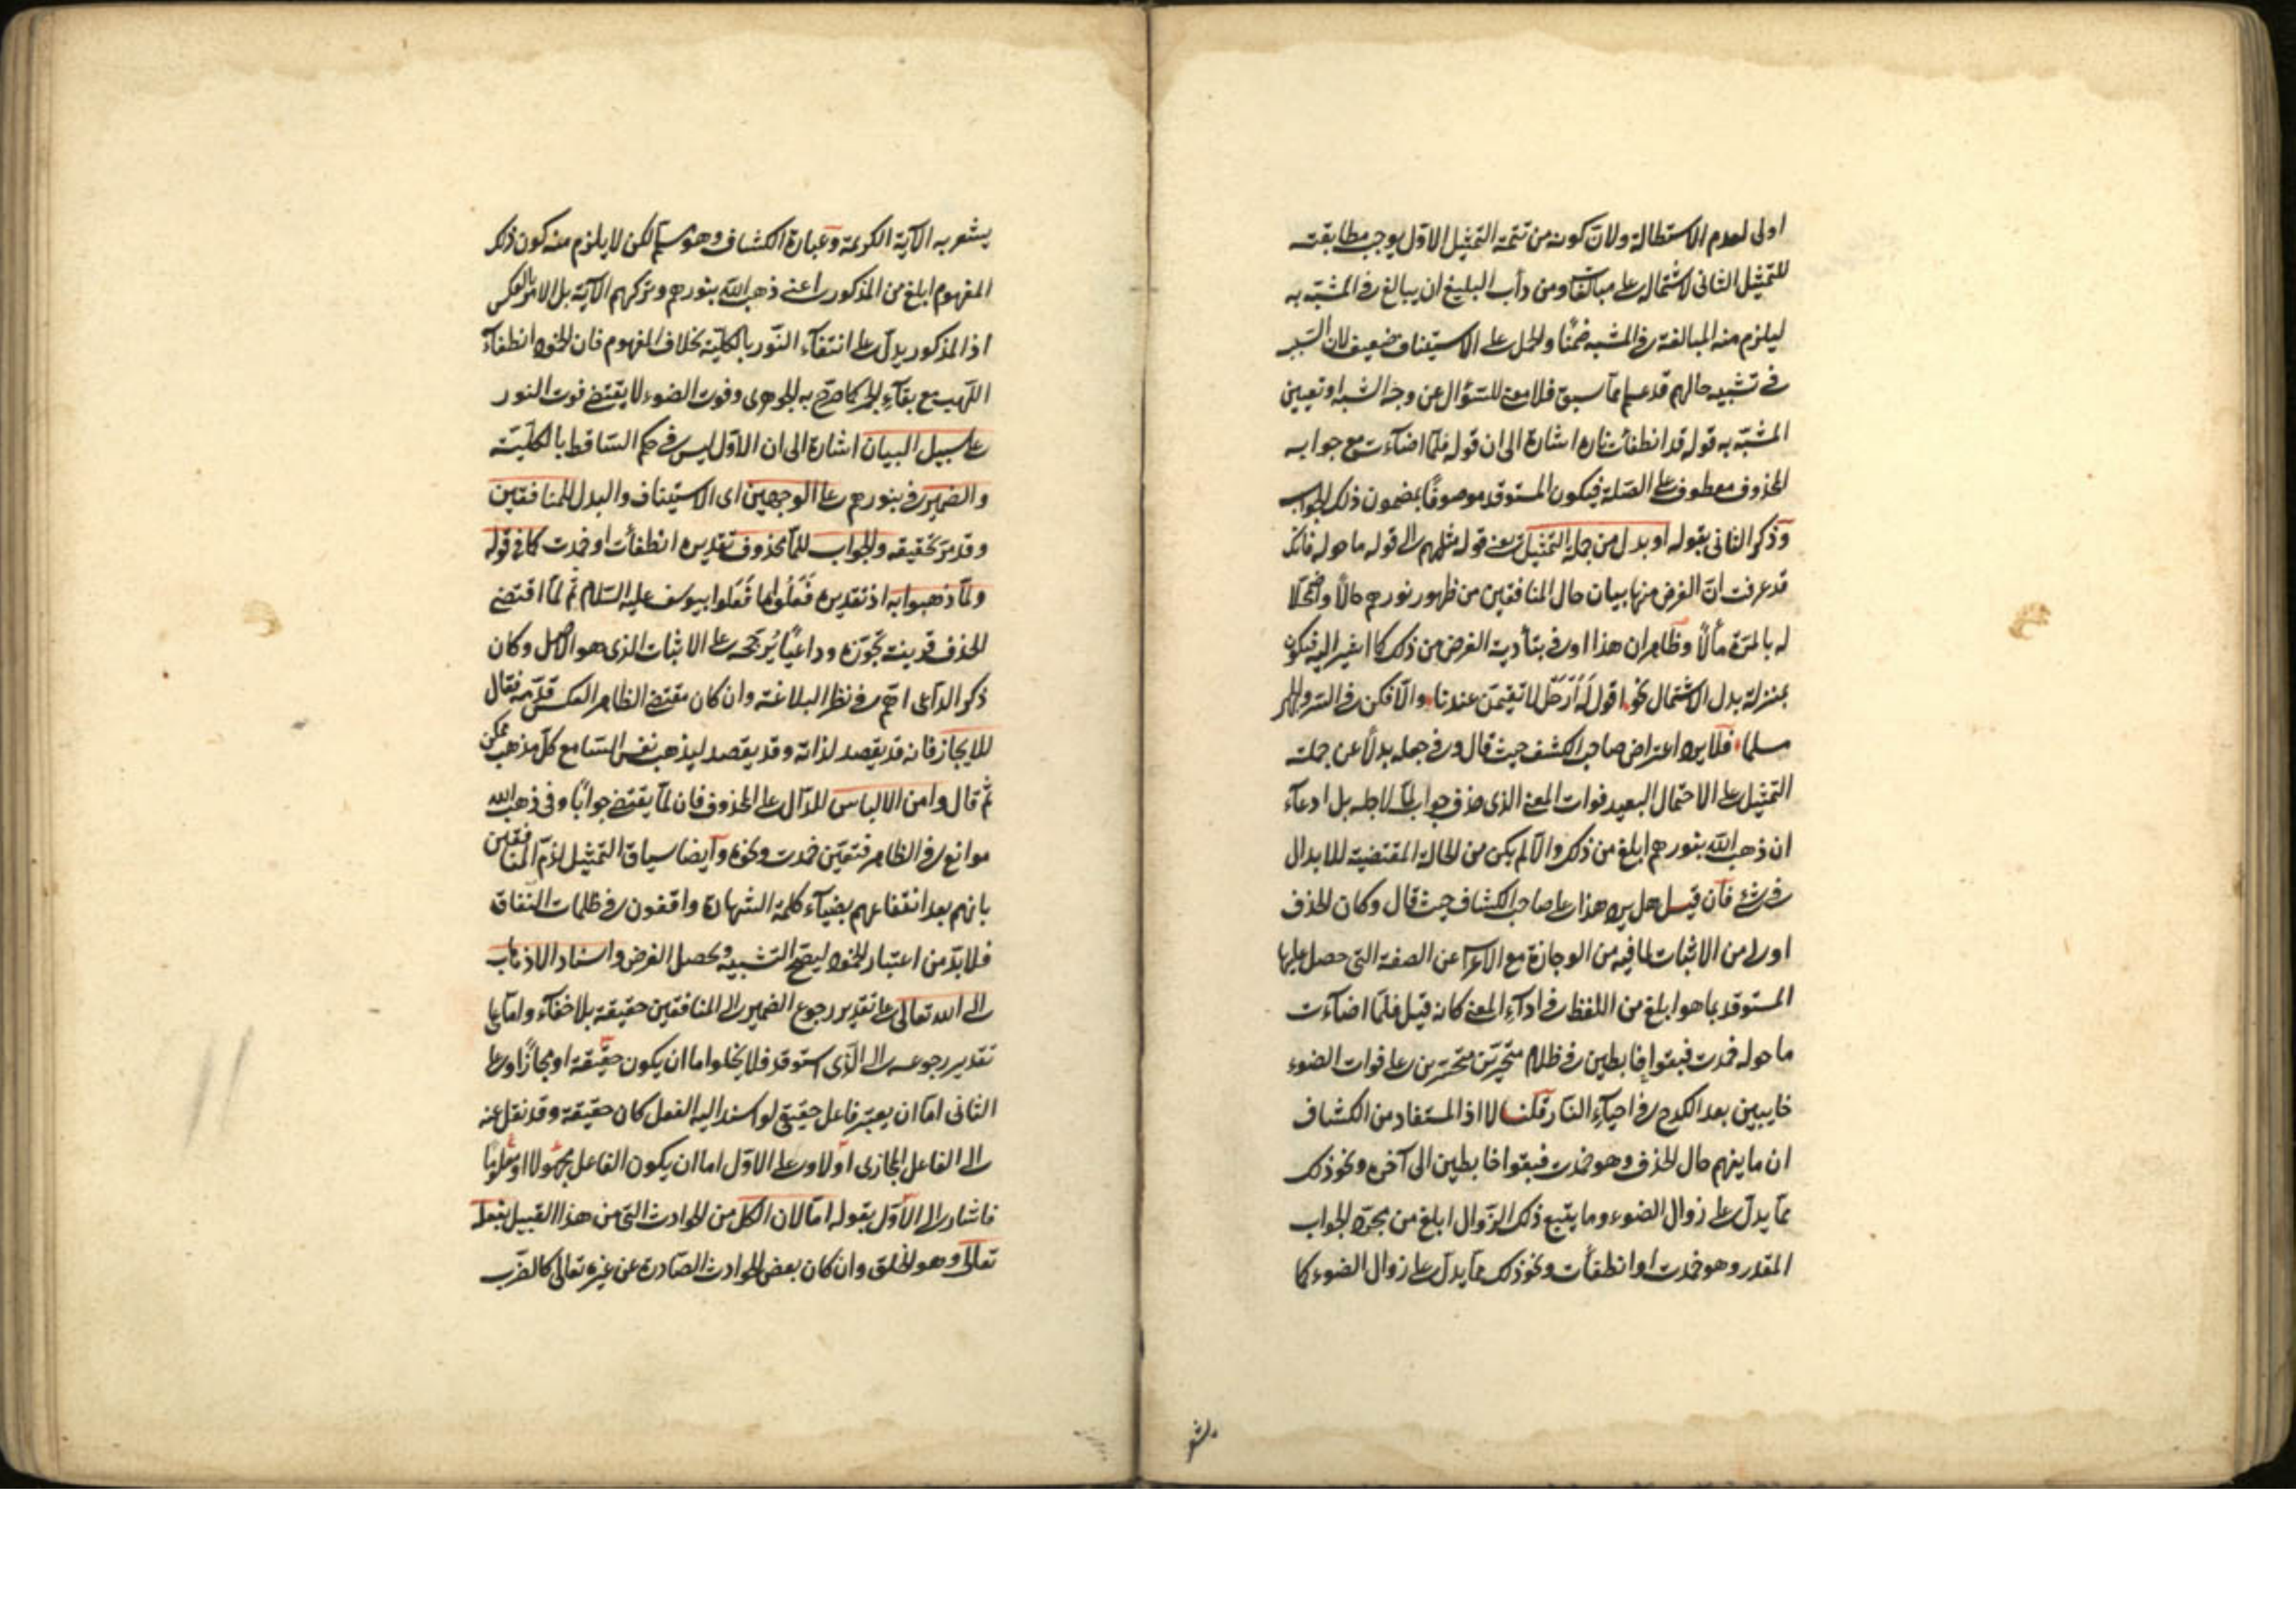 اولى لعدم الاستطالة ولان كونه من تتمة التمثيل الاول يوجب مطابقته
للتمثيل الثانى لاشتماله على مبالغات ومن دأب البليغ ان يبالغ فى المشبه به
ليلزم منه المبالغة فى المشبه ضمنا والحمل على الاستيناف ضعيف لان السبب
فى تشبيه حالهم قد علم مما سبق فلا معنى للسؤال عن وجه الشبه او تعيين
المشبه به قوله قد انطفأت ناره اشارة الى ان قوله فلما اضاءت مع جوابه
المحذوف معطوف على الصلة فيكون المستوقد موصوفا بمضمون ذلك الجواب
وذكر الثانى بقوله او بدل من جملة التمثيل يعنى قوله مثلهم الى قوله ما حوله فانك
قد عرفت ان الغرض منها بيان حال المنافقين من ظهور نورهم حالا واضمحلا
له بالمرة مآلا وظاهر ان هذا اوفى بتأدية الغرض من ذلك كما اشير اليه فيكون
بمنزلة بدل الاشتمال نحو اقول له ارحل لا تقيمن عندنا والا فكن فى السر والجهر
مسلما فلا يرد اعتراض صاحب الكشف حيث قال وفى جعله بدلا عن جملة
التمثيل على الاحتمال البعيد فوات المعنى الذى حذف جواب لما لاجله بل ادعاء
ان ذهب الله بنورهم ابلغ من ذلك والا لم يكن من الحالة المقتضية للابدال
فى شئ فان قيل هل يرد هذا على صاحب الكشاف حيث قال وكان الحذف
اولى من الاثبات لما فيه من الوجازة مع الاعراب عن الصفة التى حصل عليها
المستوقد بما هو ابلغ من اللفظ فى اداء المعنى كانه قيل فلما اضاءت
ما حوله خمدت فبقوا خابطين فى ظلام متحيرين متحسرين على فوات الضوء
خايبين بعد الكدح فى احياء النار قلنا لا اذ المستفاد من الكشاف
ان ما يفهم حال الحذف وهو خمدت فبقوا خابطين الى آخره ونحو ذلك
مما يدل على زوال الضوء وما يتبع ذلك الزوال ابلغ من مجرد الجواب
المقدر وهو خمدت او انطفأت ونحو ذلك مما يدل على زوال الضوء كما
يشعر
يشعر به الآية الكريمة وعبارة الكشاف وهو مسلم لكن لا يلزم منه كون ذلك
المفهوم ابلغ من المذكور اعنى ذهب الله بنورهم وتركهم الآية بل الامر بالعكس
اذ المذكور يدل على انتفاء النور بالكلية بخلاف المفهوم فان الخمود انطفاء
اللهب مع بقاء الجمر كما صرح به الجوهرى وفوت الضوء لا يقتضى فوت النور
على سبيل البيان اشارة الى ان الاول ليس فى حكم الساقط بالكلية
والضمير فى بنورهم على الوجهين اى الاستيناف والبدل للمنافقين
وقد مر تحقيقه والجواب للما محذوف تقديره انطفأت او خمدت كما فى قوله
ولما ذهبوا به اذ تقديره فعلوا ما فعلوا بيوسف عليه السلام ثم لما اقتضى
الحذف قرينة تجوزه وداعيا يرجحه على الاثبات الذى هو الاصل وكان
ذكر الداعى اهم فى نظر البلاغة وان كان مقتضى الظاهر العكس قدمه فقال
للايجاز فانه قد يقصد لذاته وقد يقصد ليذهب نفس السامع كل مذهب ممكن
ثم قال وامن الالباس الدال على المحذوف فان لما يقتضى جوابا وفى ذهب الله
موانع فى الظاهر فتعين خمدت ونحوه وايضا سياق التمثيل لذم المنافقين
بانهم بعد انتفاعهم بضياء كلمة الشهادة واقفون فى ظلمات النفاق
فلا بد من اعتبار الخمود ليصح التشبيه ويحصل الغرض واسناد الاذهاب
الى الله تعالى على تقدير رجوع الضمير الى المنافقين حقيقة بلا خفاء واما على
تقدير رجوعه الى الذى استوقد فلا يخلوا اما ان يكون حقيقة او مجازا وعلى
الثانى اما ان يعتبر فاعل حقيقى لو اسند اليه الفعل كان حقيقة وقد نقل عنه
الى الفاعل المجازى او لا وعلى الاول اما ان يكون الفاعل مجهولا او معلوما
فاشار الى الاول بقوله اما لان الكل من الحوادث التى من هذا القبيل بفعله
تعالى وهو الخلق وان كان بعض الحوادث الصادرة عن غيره تعالى كالضرب